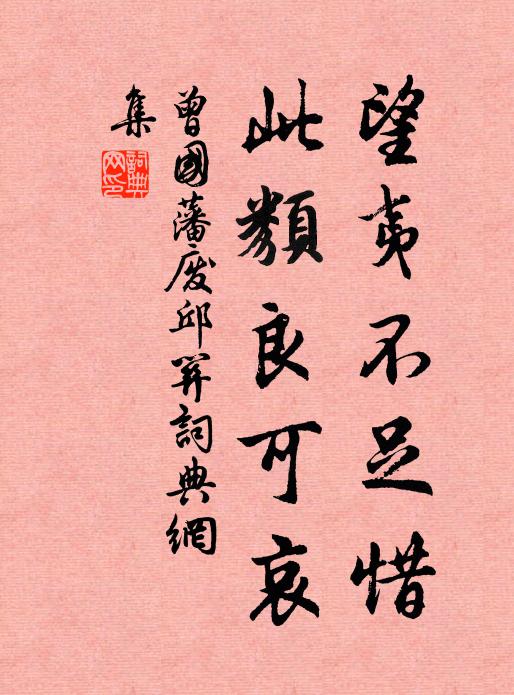 望夷不足惜
此類良可哀
曾國藩廢邱關詞典網
集
詞典網印